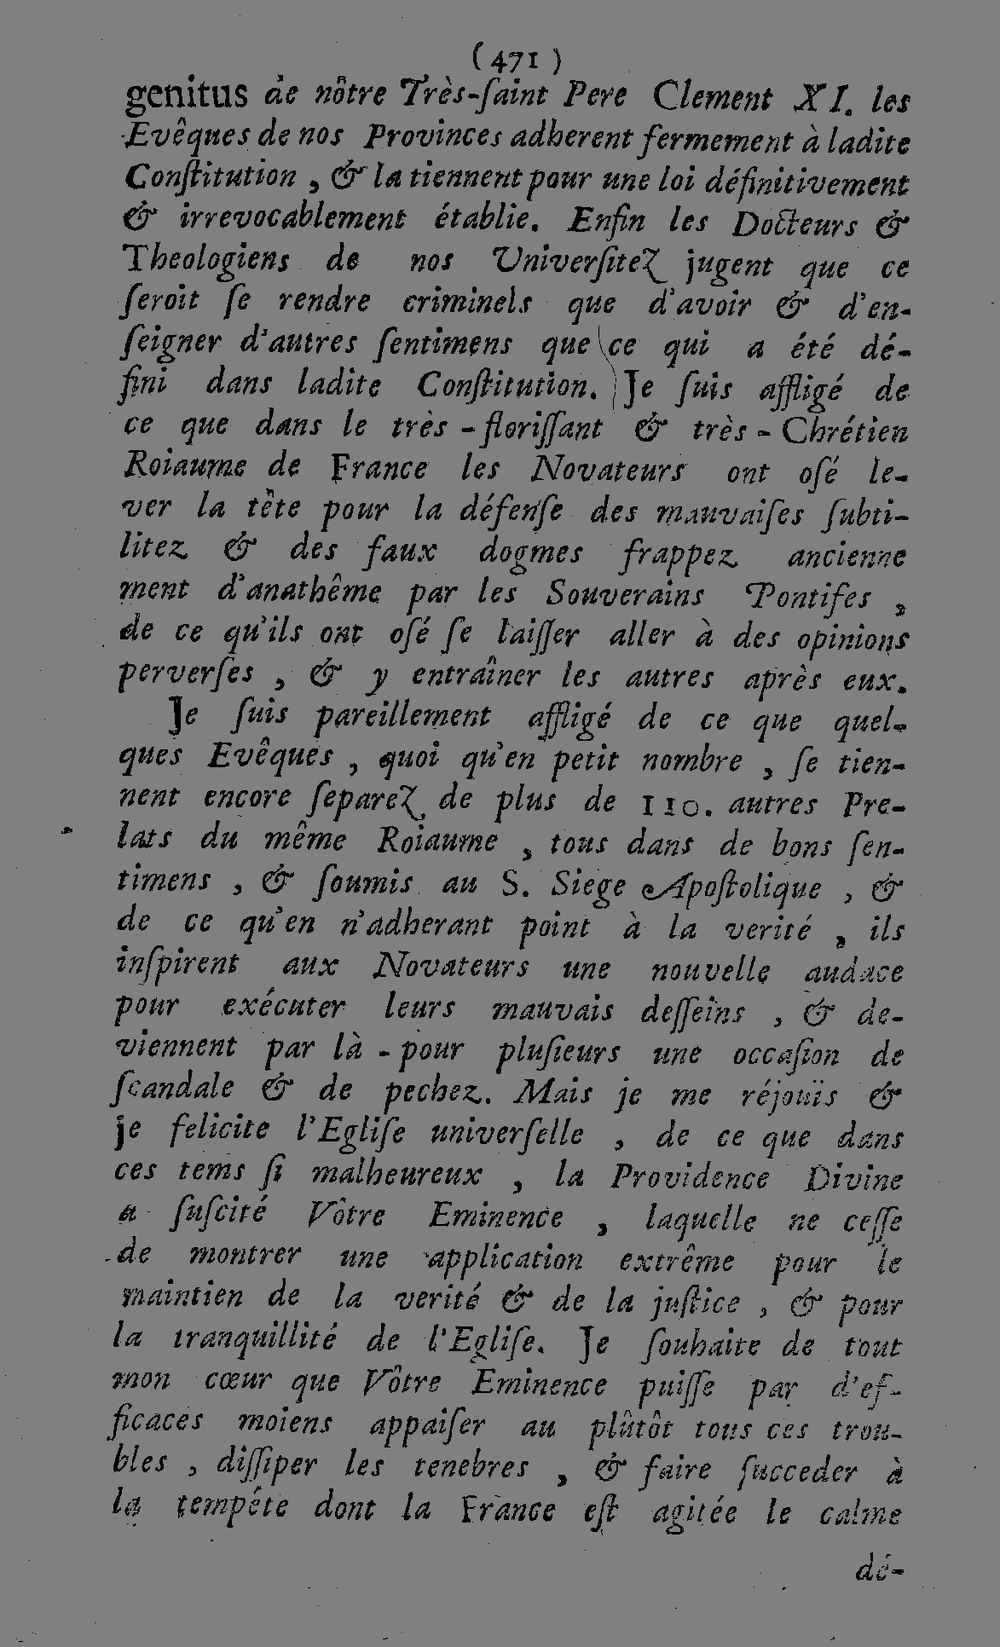 ( 471 )
genitus de nôtre Très-ſaint Pere Clement XI. les
Evêques de nos Provinces adherent fermement à ladite
Conſtitution , & la tiennent pour une loi définitivement
& irrevocablement établie. Enfin les Docteurs &
Theologiens de nos Univerſitez jugent que ce
ſeroit ſe rendre criminels que d'avoir & d'en-
ſeigner d'autres ſentimens que ce qui a été dé-
fini dans ladite Conſtitution. Je ſuis affligé de
ce que dans le très-floriſſant & très-Chrétien
Roiaume de France les Novateurs ont oſé le-
ver la tête pour la défenſe des mauvaiſes ſubti-
litez & des faux dogmes frappez ancienne
ment d'anathême par les Souverains Pontifes ,
de ce qu'ils ont oſé ſe laiſſer aller à des opinions
perverſes , & y entraîner les autres après eux.
Je ſuis pareillement affligé de ce que quel-
ques Evêques , quoi qu'en petit nombre , ſe tien-
nent encore ſeparez de plus de 110. autres Pre-
lats du même Roiaume , tous dans de bons ſen-
timens , & ſoumis au S. Siege Apoſtolique , &
de ce qu'en n'adherant point à la verité , ils
inſpirent aux Novateurs une nouvelle audace
pour exécuter leurs mauvais deſſeins , & de-
viennent par là-pour pluſieurs une occaſion de
ſcandale & de pechez. Mais je me réjouïs &
je felicite l'Egliſe univerſelle , de ce que dans
ces tems ſi malheureux , la Providence Divine
a ſuſcité Vôtre Eminence , laquelle ne ceſſe
de montrer une application extrême pour le
maintien de la verité & de la juſtice , & pour
la tranquillité de l'Egliſe. Je ſouhaite de tout
mon cœur que Vôtre Eminence puiſſe par d'ef-
ficaces moiens appaiſer au plûtôt tous ces trou-
bles , diſſiper les tenebres , & faire ſucceder à
la tempéte dont la France eſt agitée le calme
dé-